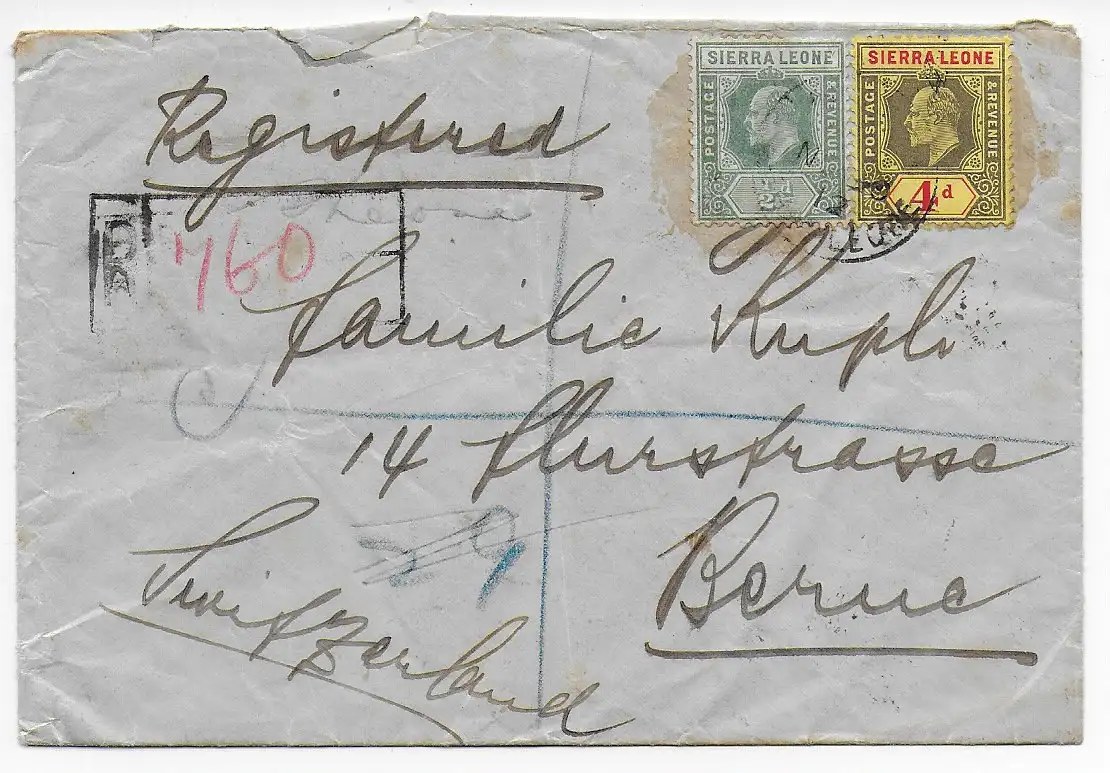 Registered
SIERRA LEONE
POSTAGE & REVENUE
½d
SIERRA LEONE
POSTAGE & REVENUE
4d
LEONE
R
760
Familie Kupli
14 Flurstrasse
Berne
Switzerland